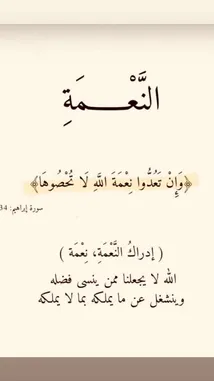 النَّعْـــمَةِ
﴿وَإِنْ تَعُدُّوا نِعْمَةَ اللَّهِ لَا تُحْصُوهَا﴾
سورة إبراهيم: 34
( إدراكُ النَّعْمَةِ، نِعْمَة )
الله لا يجعلنا ممن ينسى فضله
وينشغل عن ما يملكه بما لا يملكه